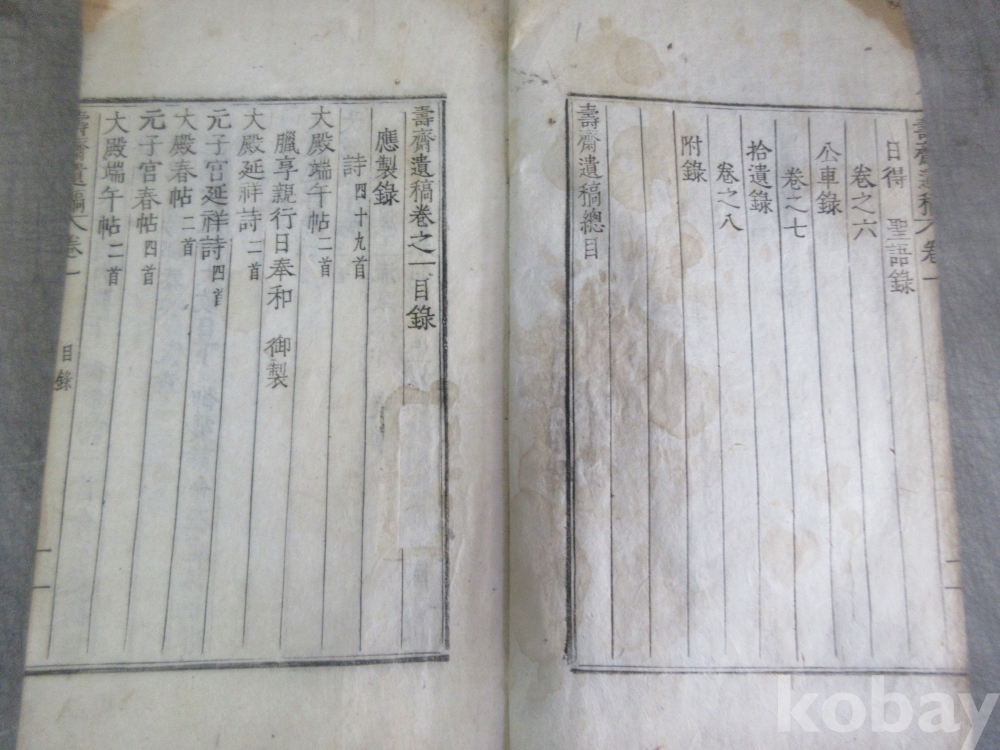 日得 聖語錄
卷之六
公車錄
卷之七
拾遺錄
卷之八
附錄
壽齋遺稿總目
壽齋遺稿卷之一目錄
應製錄
詩四十九首
大殿端午帖二首
臘享親行日奉和 御製
大殿延祥詩二首
元子宮延祥詩四首
大殿春帖二首
元子宮春帖四首
大殿端午帖二首
壽齋遺稿 卷一
目錄
一
kobay